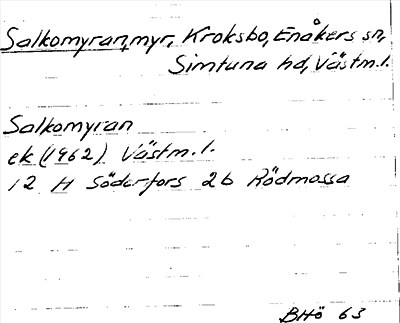 Salkomyran, myr, Kroksbo, Enåkers sn,
Simtuna hd, Västm.l.
Salkomyran
ek (1962) Västm.l.
12 H Söderfors 2b Rödmossa
BHö 63